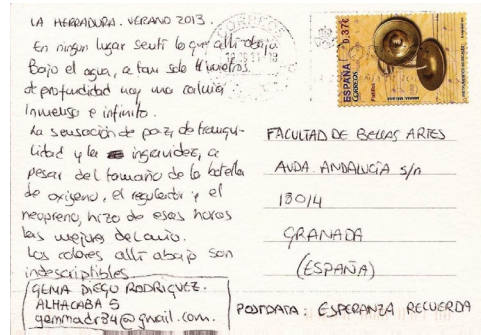 LA HERRADURA. VERANO 2013.
En ningún lugar sentí lo que allí abajo
Bajo el agua, a tan solo 11 metros
de profundidad hay una calma
inmensa e infinita.
La sensación de paz, de tranqui-
lidad y la ingravidez, a
pesar del tamaño de la botella
de oxígeno, el regulador y el
neopreno, hizo de esas horas
las mejores del año.
Los colores allí abajo son
indescriptibles
GEMA DIEGO RODRIGUEZ.
ALHACABA 5
gemmadr34@gmail.com.
CORREOS
0,37€
ESPAÑA
CORREOS
FACULTAD DE BELLAS ARTES
AVDA. ANDALUCÍA s/n
18014
GRANADA
(ESPAÑA)
POSTDATA: ESPERANZA RECUERDA